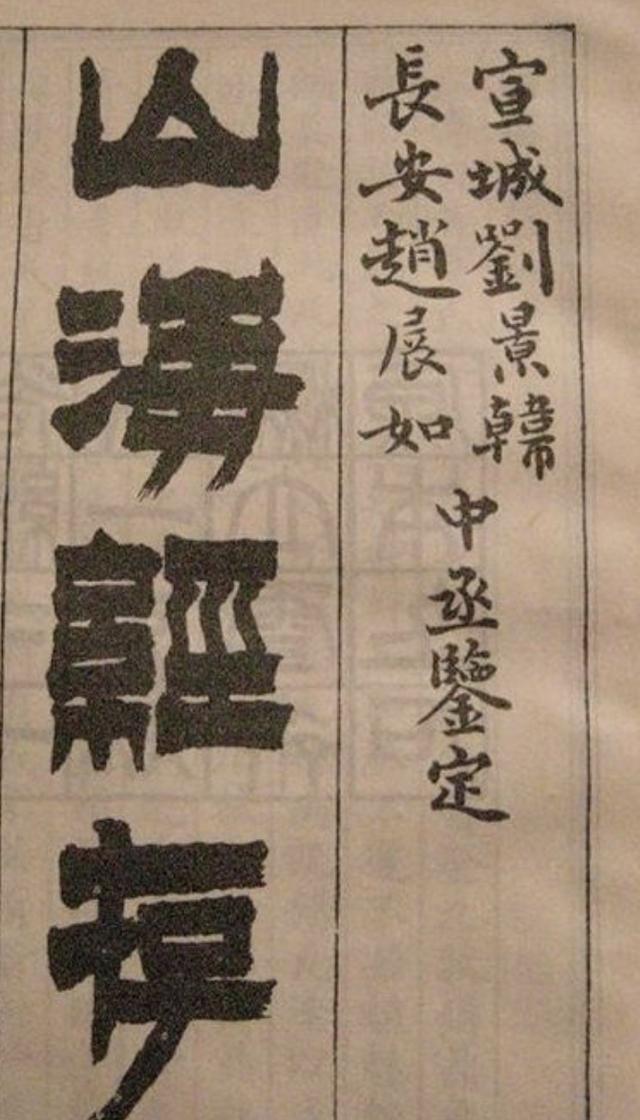 宣城劉景韓
長安趙展如
中丞鑒定
山海經存